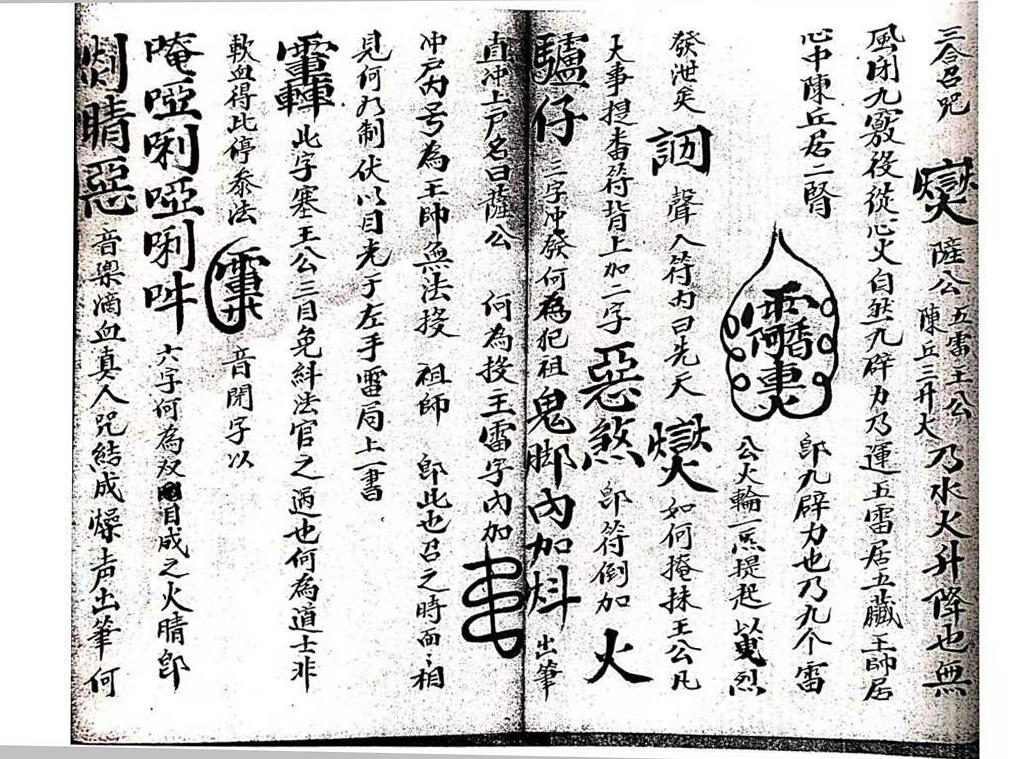 三合召咒 薩公 五雷王公 陳丘三升大 乃水火升降也無
風閉九竅後從心火自然九碎力乃運五雷居五臟王帥居
心中陳丘居二腎 即九碎力也乃九个雷
公火輪一炁提起以 烈
發泄矣 聲入符內曰先天 如何掩抹王公凡
大事提 符背上加二字 惡煞 即符倒加 火
驢仔 三字冲發何為犯祖 鬼腳內加 出筆
直冲上戶名曰薩公 何為授王雷字內加
冲戶內号為王帥無法授 祖師 即此也召之時面々相
見何乃制伏以目光于左手雷局上一書
此字塞王公三目免糾法官之過也何為道士非
軟血得此停泰法 音開字以
唵啞唎啞唎吽 六字何為双 目成之火睛即
睛惡 音 滴血真人咒結成燥声出筆何